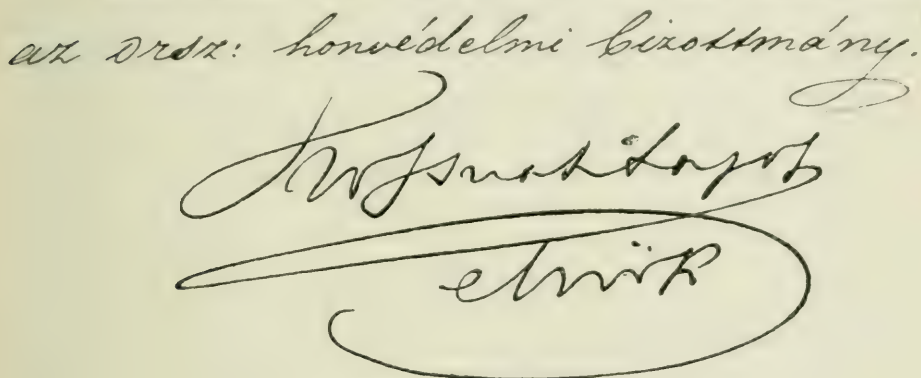 az Orsz: honvédelmi bizottmány.
Kossuth Lajos
elnök